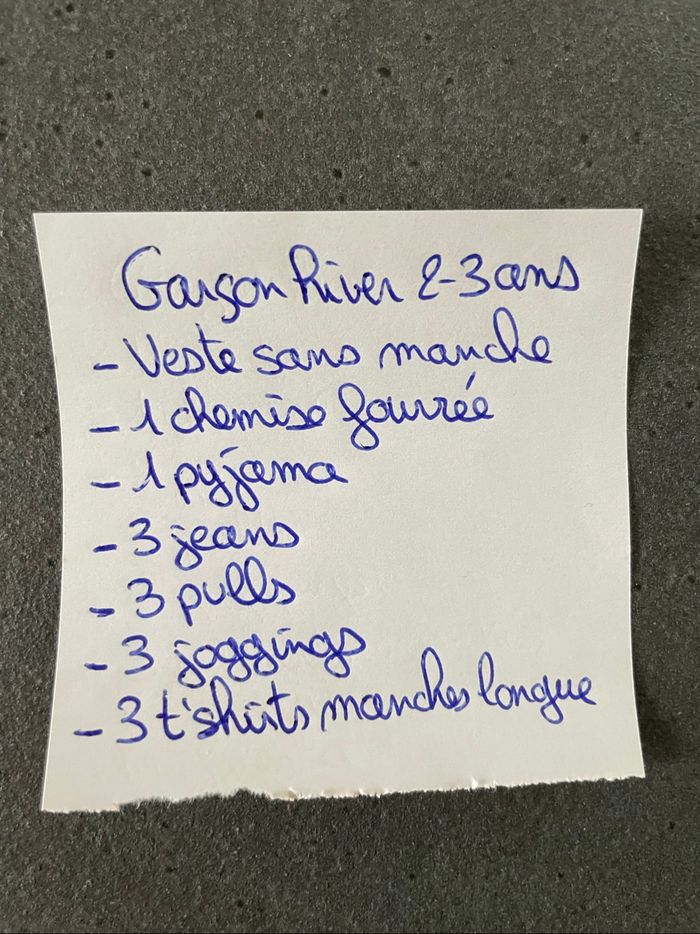 Garçon hiver 2-3 ans
- Veste sans manche
- 1 chemise fourrée
- 1 pyjama
- 3 jeans
- 3 pulls
- 3 joggings
- 3 t'shirts manches longue